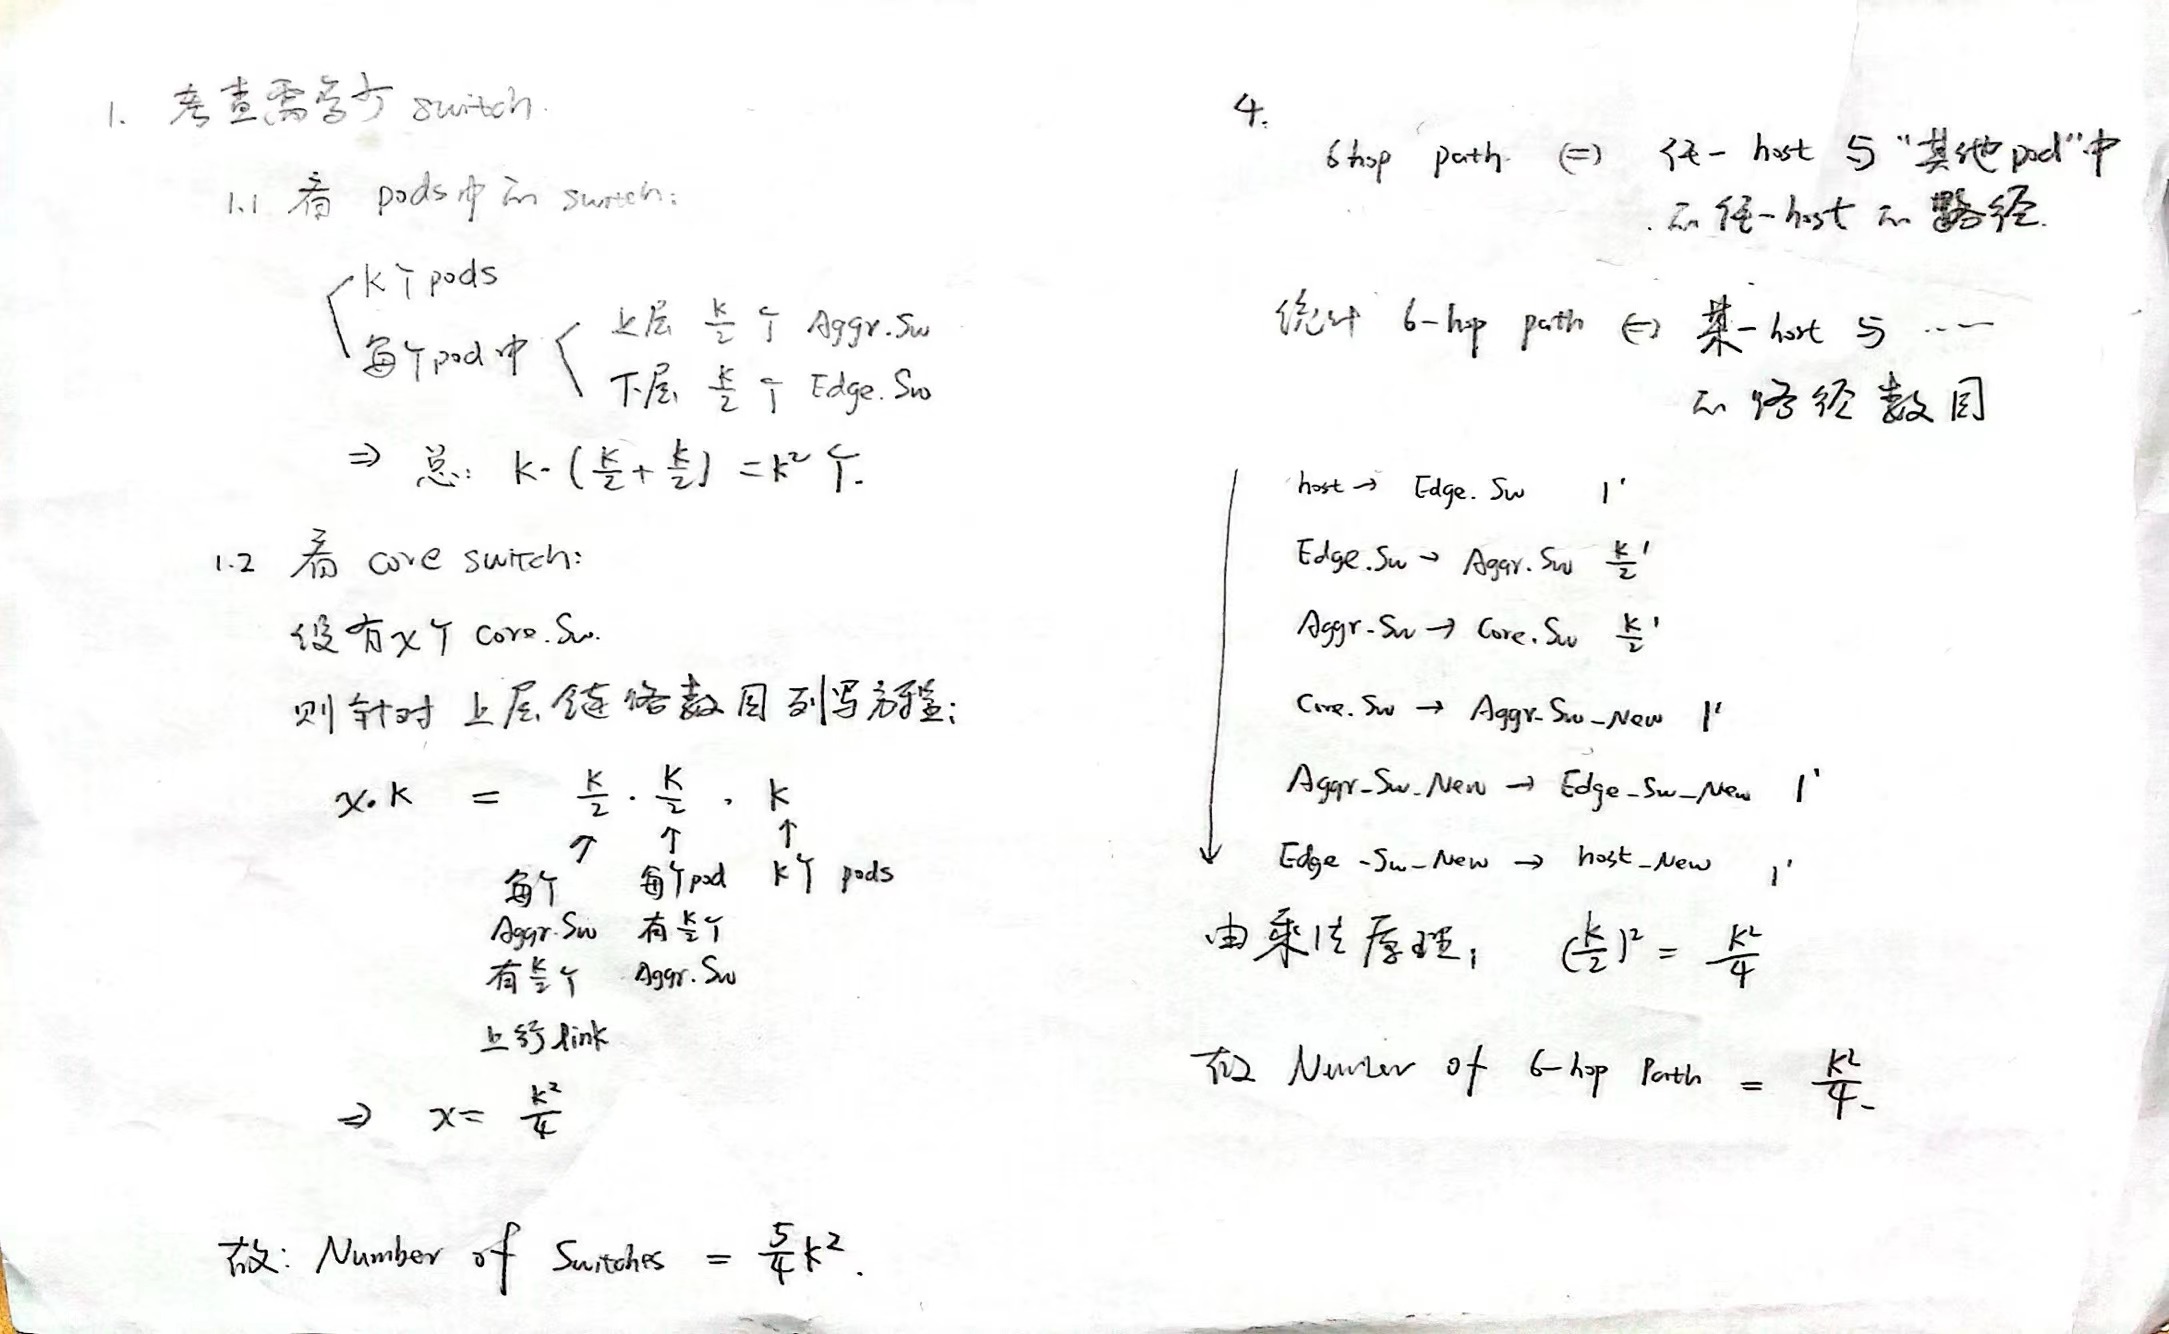 1. 考查需多少 switch.
1.1 看 pods中的 switch:
k个pods
每个pod中
上层 k/2 个 Aggr.Sw
下层 k/2 个 Edge.Sw
⇒ 总: k·(k/2 + k/2) = k² 个.
1.2 看 core switch:
设有x个 core.Sw.
则针对上层链路数目列写方程:
x·k = k/2 · k/2 · k
↑ ↑ ↑
每个 每个pod k个 pods
Aggr.Sw 有k/2个
有k/2个 Aggr.Sw
上行link
⇒ x = k²/4
故: Number of Switches = 5/4 k².
4.
6hop path ⇔ 任一 host 与 "其他pod"中
的任一host 的 路径.
统计 6-hop path ⇔ 某一host 与 ……
的路径数目
host → Edge.Sw 1'
Edge.Sw → Aggr.Sw k/2'
Aggr.Sw → Core.Sw k/2'
Core.Sw → Aggr_Sw_New 1'
Aggr_Sw_New → Edge_Sw_New 1'
Edge_Sw_New → host_New 1'
由乘法原理, (k/2)² = k²/4
故 Number of 6-hop Path = k²/4.